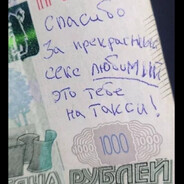 спасибо
За прекрасный
секс любимый
это тебе
на такси!
1000
РУБЛЕЙ